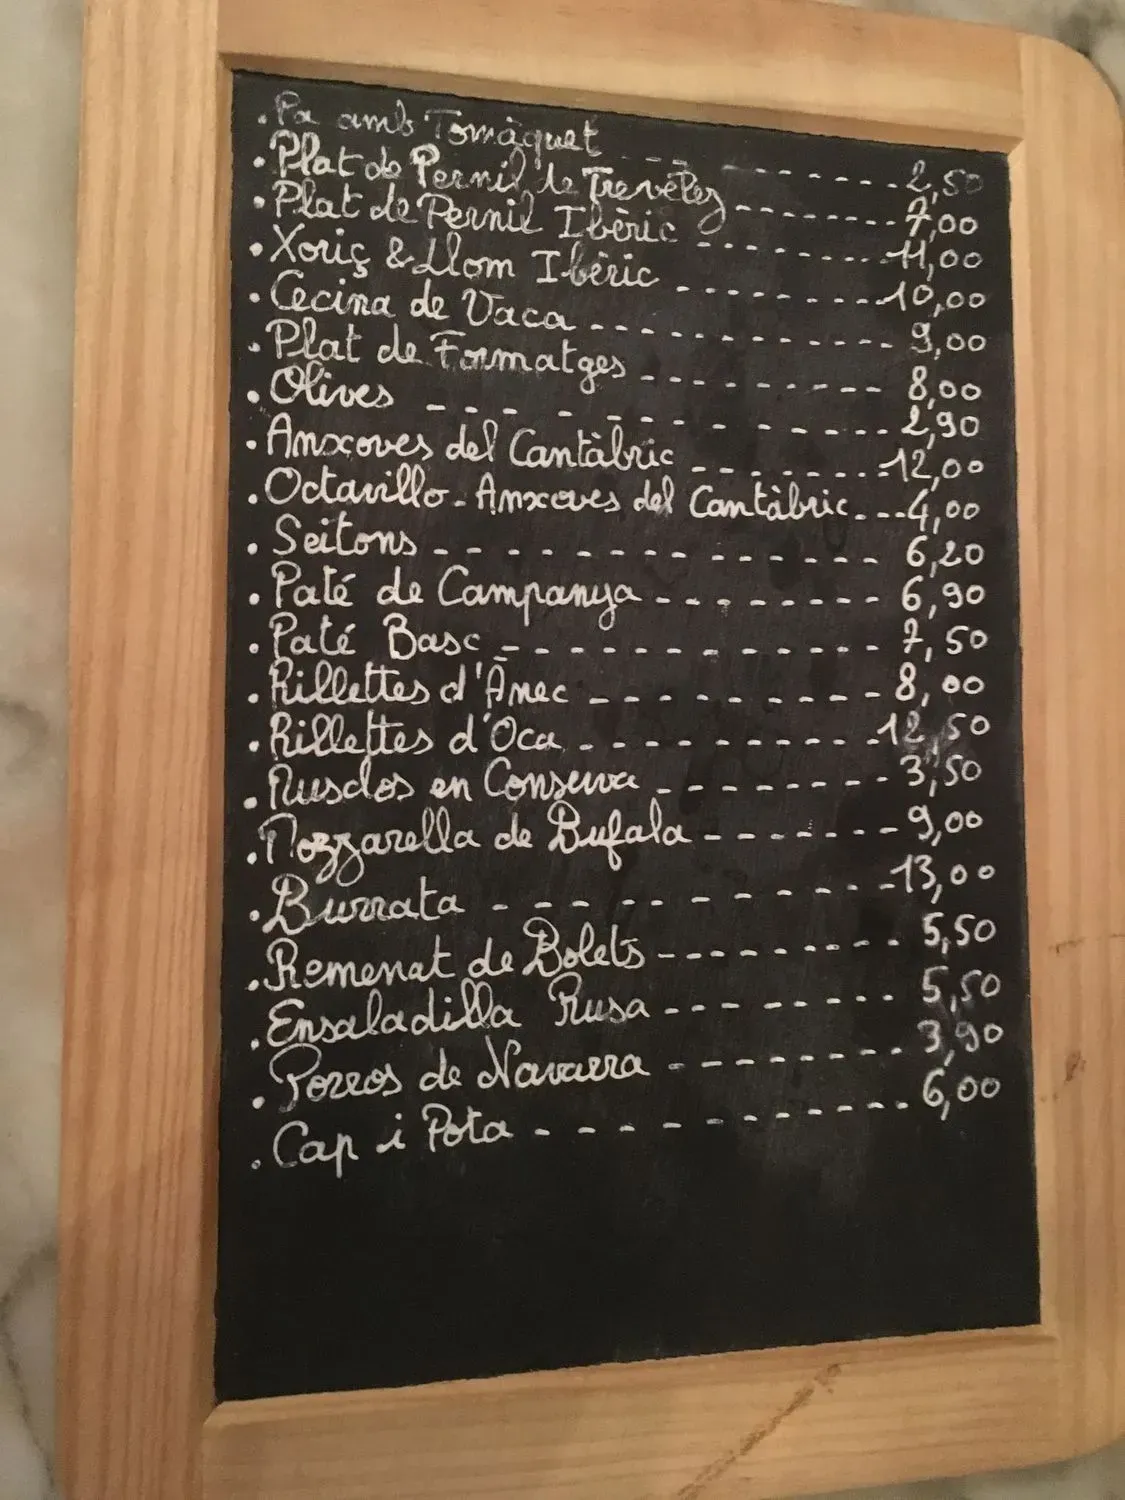 . Pa amb Tomàquet - - - - - - - - - - 2,50
. Plat de Pernil de Trevélez - - - - - - - - 7,00
. Plat de Pernil Ibèric - - - - - - - - - 11,00
. Xoriç & Llom Ibèric - - - - - - - - - 10,00
. Cecina de Vaca - - - - - - - - - - - 9,00
. Plat de Formatges - - - - - - - - - 8,00
. Olives - - - - - - - - - - - - - 2,90
. Anxoves del Cantàbric - - - - - - - - 12,00
. Octavillo - Anxoves del Cantàbric - - - 4,00
. Seitons - - - - - - - - - - - - - 6,20
. Paté de Campanya - - - - - - - - 6,90
. Paté Basc - - - - - - - - - - - - 7,50
. Rillettes d'Ànec - - - - - - - - - - 8,00
. Rillettes d'Oca - - - - - - - - - - 12,50
. Musclos en Conserva - - - - - - - - 3,50
. Mozzarella de Bufala - - - - - - - 9,00
. Burrata - - - - - - - - - - - - 13,00
. Remenat de Bolets - - - - - - - - 5,50
. Ensaladilla Rusa - - - - - - - - 5,50
. Porros de Navarra - - - - - - - - 3,90
. Cap i Pota - - - - - - - - - - - 6,00